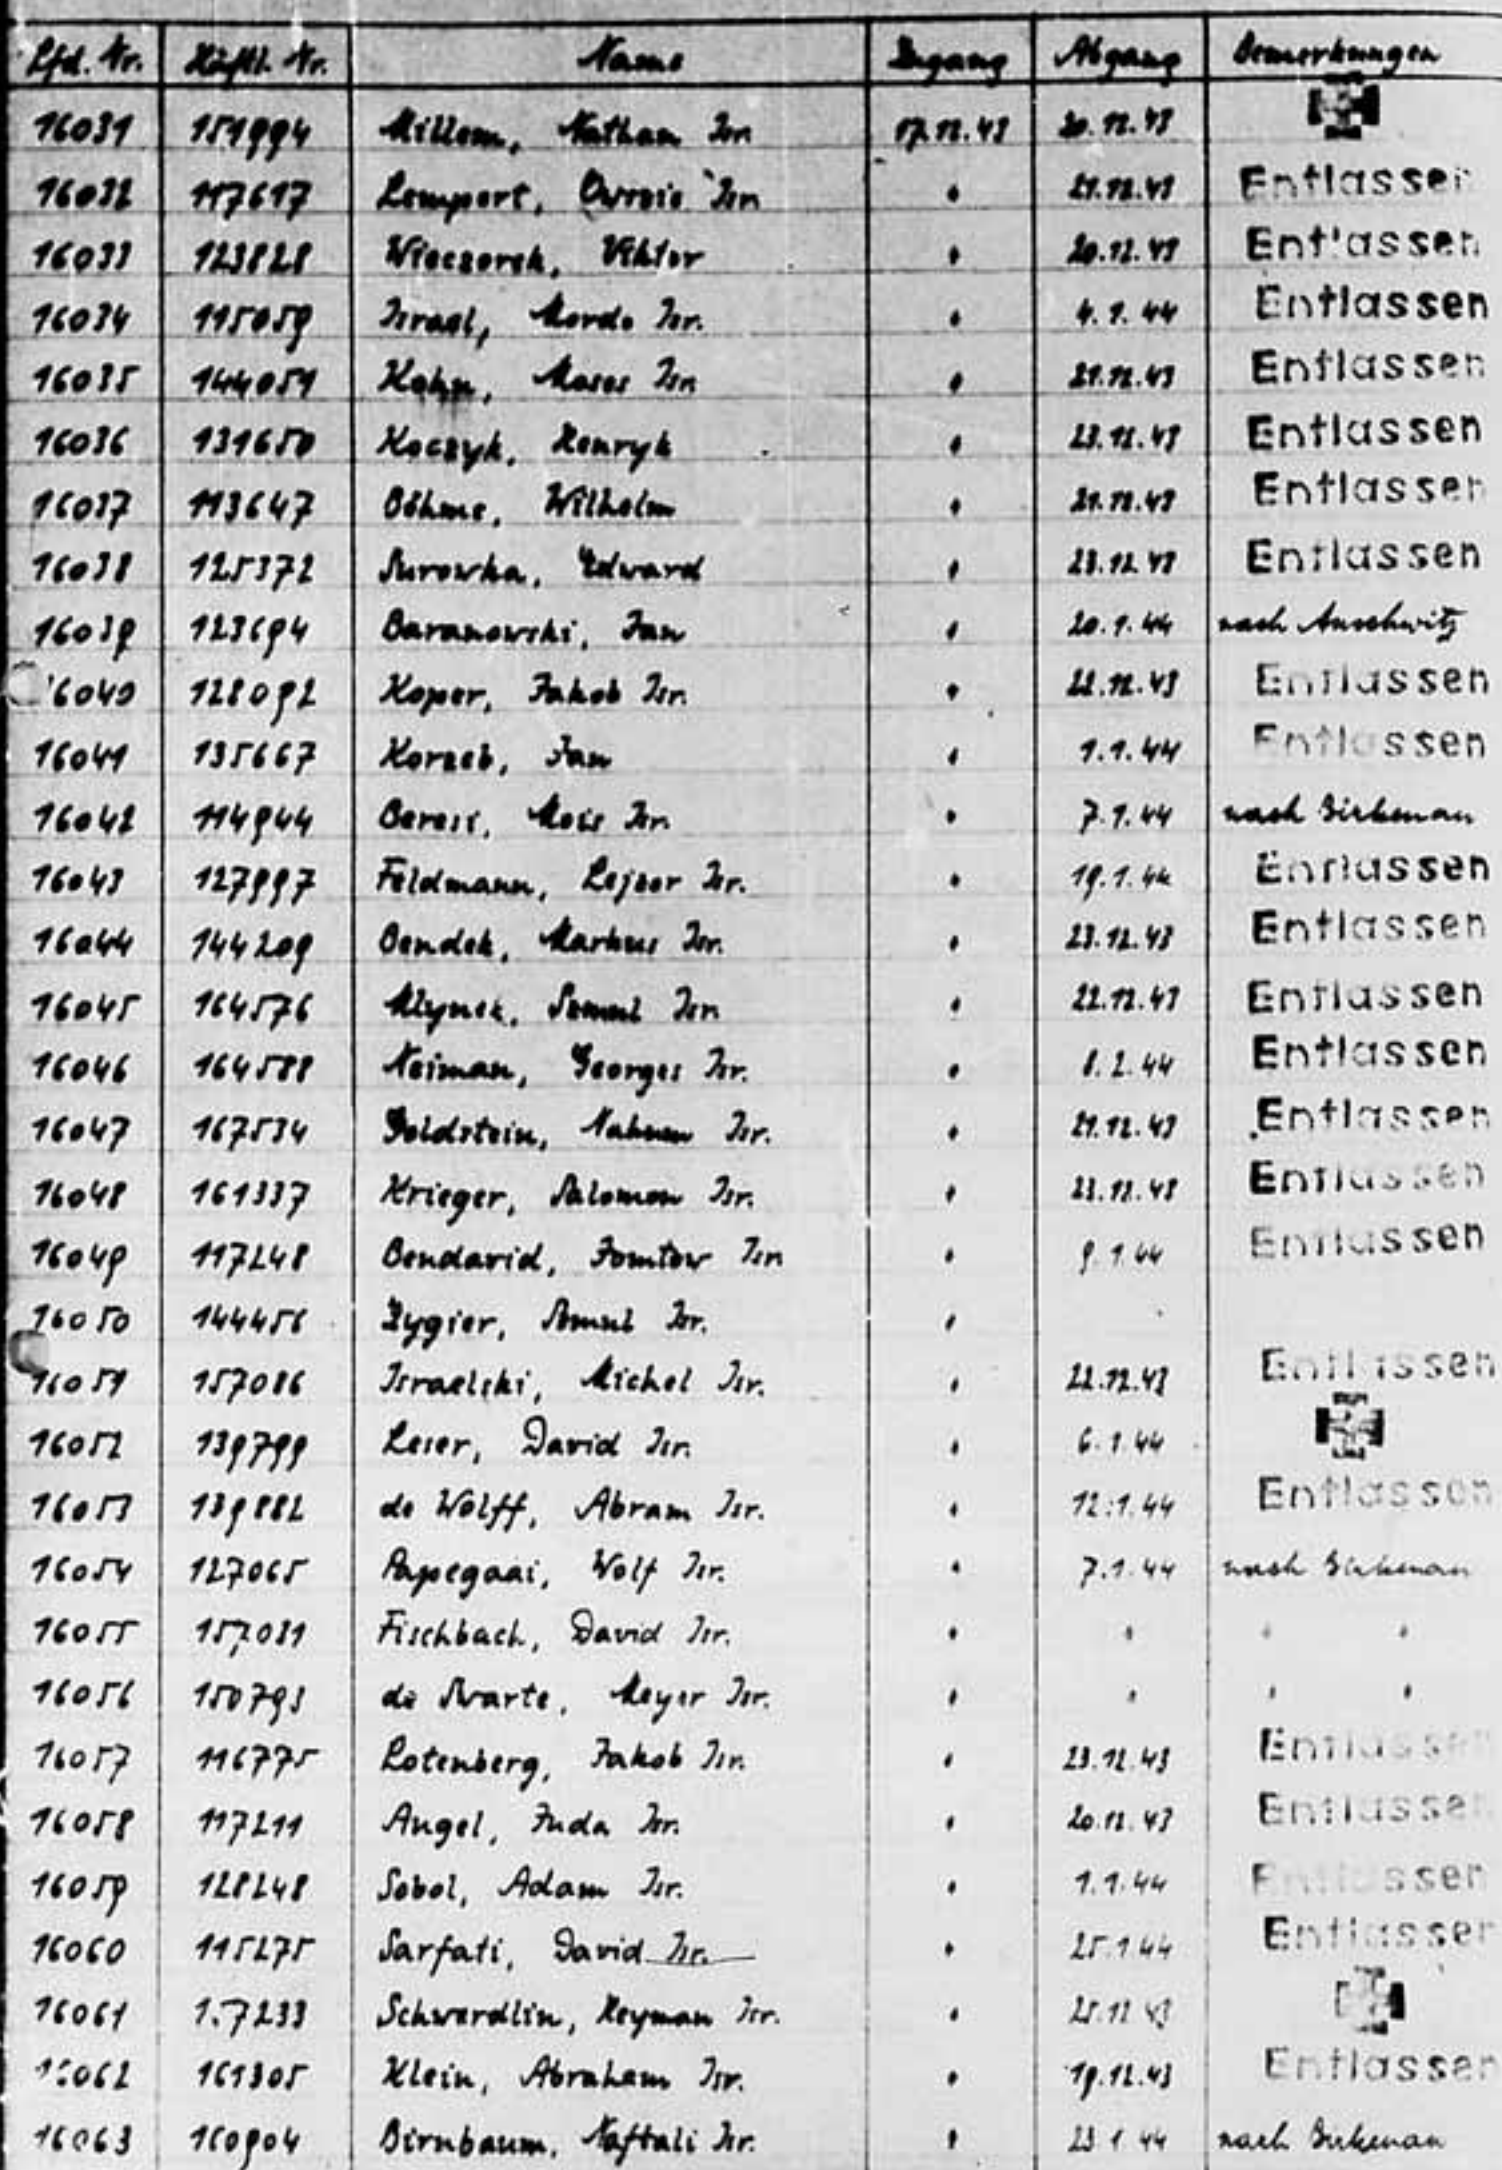 Lfd. Nr. Häftl. Nr. Name Zugang Abgang Bemerkungen
16031 151994 Millem, Nathan Isr. 17.12.43 20.12.43
16032 117617 Lempert, Isr. " 21.12.43 Entlassen
16033 123828 Wieczorek, Viktor " 20.12.43 Entlassen
16034 115059 Israel, Mordo Isr. " 4.1.44 Entlassen
16035 144051 Kohn, Moses Isr. " 21.12.43 Entlassen
16036 131650 Koczyk, Henryk " 23.12.43 Entlassen
16037 113647 Böhme, Wilhelm " 21.12.43 Entlassen
16038 125372 Surowka, Edward " 23.12.43 Entlassen
16039 123694 Baranowski, Jan " 20.1.44 nach Auschwitz
16040 128092 Koper, Jakob Isr. " 22.12.43 Entlassen
16041 135667 Korzeb, Jan " 1.1.44 Entlassen
16042 114944 Isr. " 7.1.44 nach Birkenau
16043 127997 Feldmann, Lejzor Isr. " 19.1.44 Entlassen
16044 144209 Bendek, Markus Isr. " 23.12.43 Entlassen
16045 164576 Mlynek, Samuel Isr. " 22.12.43 Entlassen
16046 164588 Neiman, Georges Isr. " 8.2.44 Entlassen
16047 167534 Goldstein, Nahum Isr. " 21.12.43 Entlassen
16048 161337 Krieger, Salomon Isr. " 23.12.43 Entlassen
16049 117248 Bendavid, Jomtow Isr. " 9.1.44 Entlassen
16050 144456 Zygier, Isr. "
16051 157086 Israelski, Michel Isr. " 22.12.43 Entlassen
16052 139799 Leser, David Isr. " 6.1.44
16053 139882 de Wolff, Abram Isr. " 12.1.44 Entlassen
16054 127065 Papegaai, Wolf Isr. " 7.1.44 nach Birkenau
16055 157031 Fischbach, David Isr. " " " "
16056 150793 de Swarte, Meyer Isr. " " " "
16057 116775 Rotenberg, Jakob Isr. " 23.12.43 Entlassen
16058 117211 Angel, Juda Isr. " 20.12.43 Entlassen
16059 128248 Sobol, Adam Isr. " 1.1.44 Entlassen
16060 115275 Sarfati, David Isr. " 25.1.44 Entlassen
16061 Schwerdlin, Heyman Isr. " 25.12.43
16062 161305 Klein, Abraham Isr. " 19.12.43 Entlassen
16063 160904 Birnbaum, Naftali Isr. " 23.1.44 nach Birkenau